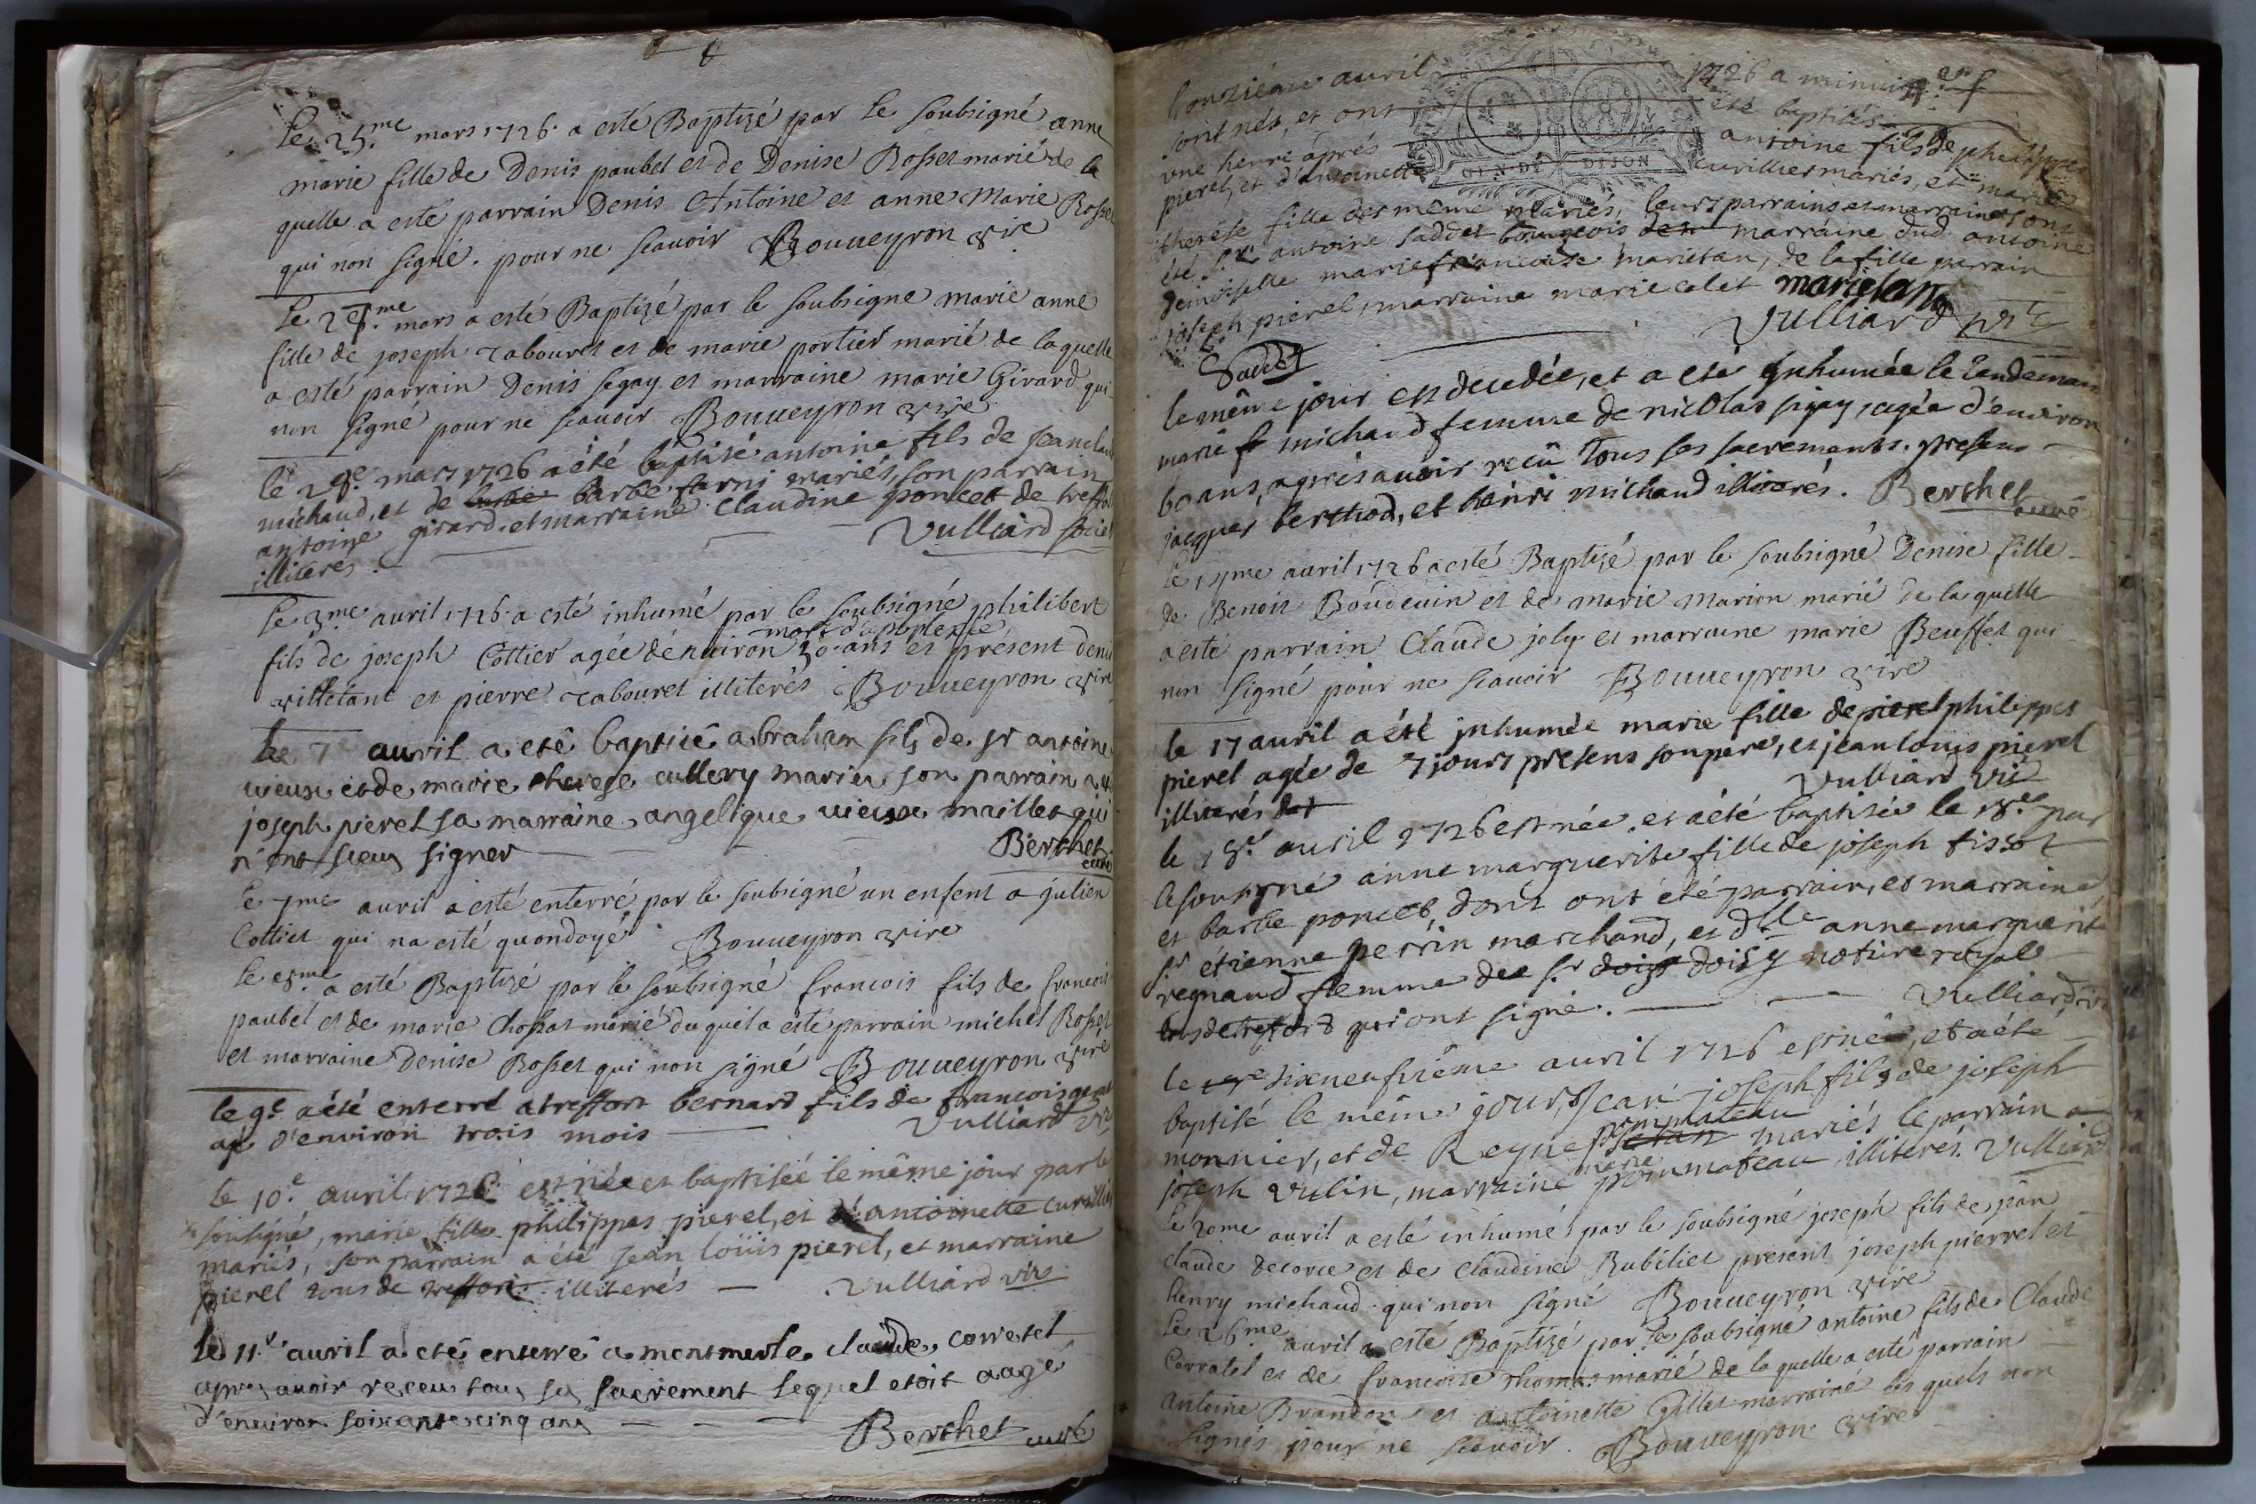 Le 25.me mars 1726. a esté Baptizé par le soubsigné anne
marie fille de Denis paubel et de Denise Rosset marié de la
quelle a esté parrain Denis Antoine et anne Marie Rosset
qui non signé. pour ne scauoir Bouueyron vire
Le 27.me mars a esté Baptizé par le soubsigne marie anne
fille de joseph tabouret et de marie portier marié de laquelle
a esté parrain Denis segay et marraine marie Girard qui
non signé pour ne scauoir Bouueyron vire
le 28.e mars 1726 a été baptisé antoine fils de jeanclau
michaud, et de barbe farni mariés, son parrain
antoine girard, et marraine claudine poncet de treffor
illiterés. Vulliard
Le 3me avril 1726 a esté inhumé par le soubsigné philibert
mort d'apoplexie
fils de joseph Cottier agée dénuiron 30 ans et présent denis
villetant et pierre tabouret illiterés Bouueyron vire
Le 7 auril a eté baptisé abraham fils de sr antoine
uieux et de marie therese cullery mariés son parrain
joseph pierel sa marraine angelique uieux maillet qui
n'ont sceu signer Berthet
curé
Le 7me avril a esté enterré par le soubsigné un enfent a julien
Cottier qui na esté quondoyé Bouueyron vire
Le 8me a esté Baptizé par le soubsigné francois fils de francois
paubel et de marie Chossat marié duquel a esté parrain michel Rosset
et marraine Denise Rosset qui non signé Bouueyron vire
le 9.e a été enterré a treffort bernard fils de francois
agé d'environ trois mois Vulliard vre
le 10.e avril 1726 est née et baptisée le même jour par le
soussigné, marie fille philippes pierel, et d'antoinette
mariés, son parrain a été jean loüis pierel, et marraine
pierel tous de treffort illiterés Vulliard vire
Le 11.e auril a eté enterré a montmerle claude corretet
apres auoir receu tous ses sacrement lequel etoit aagé
d'enuiron soixante cinq ans
Berthet curé
l'onzième avril 1726 a minuit
sont nés, et ont été baptisés
une heure après antoine fils de philippes
pierel, et d'antoinette curillier mariés, et marie
therése fille des meme mariés, leurs parrains et marraines ont
été sr. antoine saddet bourgeois marraine dud. antoine
demoiselle marie francoise marietan, de la fille parrain
joseph pierel, marraine marie calet marietan
Saddet Vulliard vre
GEN. DE DIJON
le même jour est decedée, et a eté inhumée le lendemain
marie michaud femme de nicolas sigay, agée d'environ
60 ans, après auoir reçû tous ses sacrements. presens
jacques berthod, et henri michaud illiterés. Berthet
curé
Le 15me avril 1726 a esté Baptizé par le soubsigné Denise fille
de Benoit Boudeuin et de marie Marion marié de la quelle
a esté parrain Claude joly et marraine marie Beuffet qui
non signé pour ne scauoir Bouueyron vire
le 17 auril a été inhumée marie fille de pierel philippes
pierel agée de 7 jours presens son pere, et jean loüis pierel
illiterés Vulliard vre
le 18.e avril 1726 est née, et a été baptisée le 18.e par
le soussigné anne marguerite fille de joseph tissot
et barbe poncet, dont ont été parrain, et marraine
sr étienne perrin marchand, et dlle anne marguerite
regnaud femme de sr doisy notaire royal
tous de treffort qui ont signé. Vulliard
le dixneufiéme avril 1726 est né, et a été
baptisé le même jour, jean joseph fils de joseph
pommateau
monnier, et de Reyne mariés le parrain a
marie
joseph vulin, marraine pommateau illiterés. Vulliard
Le 20me avril a esté inhumé par le soubsigné joseph fils de jean
claude decorce et de claudine Rubiliet present joseph pierrel et
henry michaud qui non signé Bouueyron vire
Le 26me auril a esté Baptizé par le soubsigné antoine fils de Claude
Corratel et de francoise Thomas marié de la quelle a esté parrain
antoine Brandon et antoinette Gillet marraine les quels non
signés pour ne scauoir. Bouueyron vire